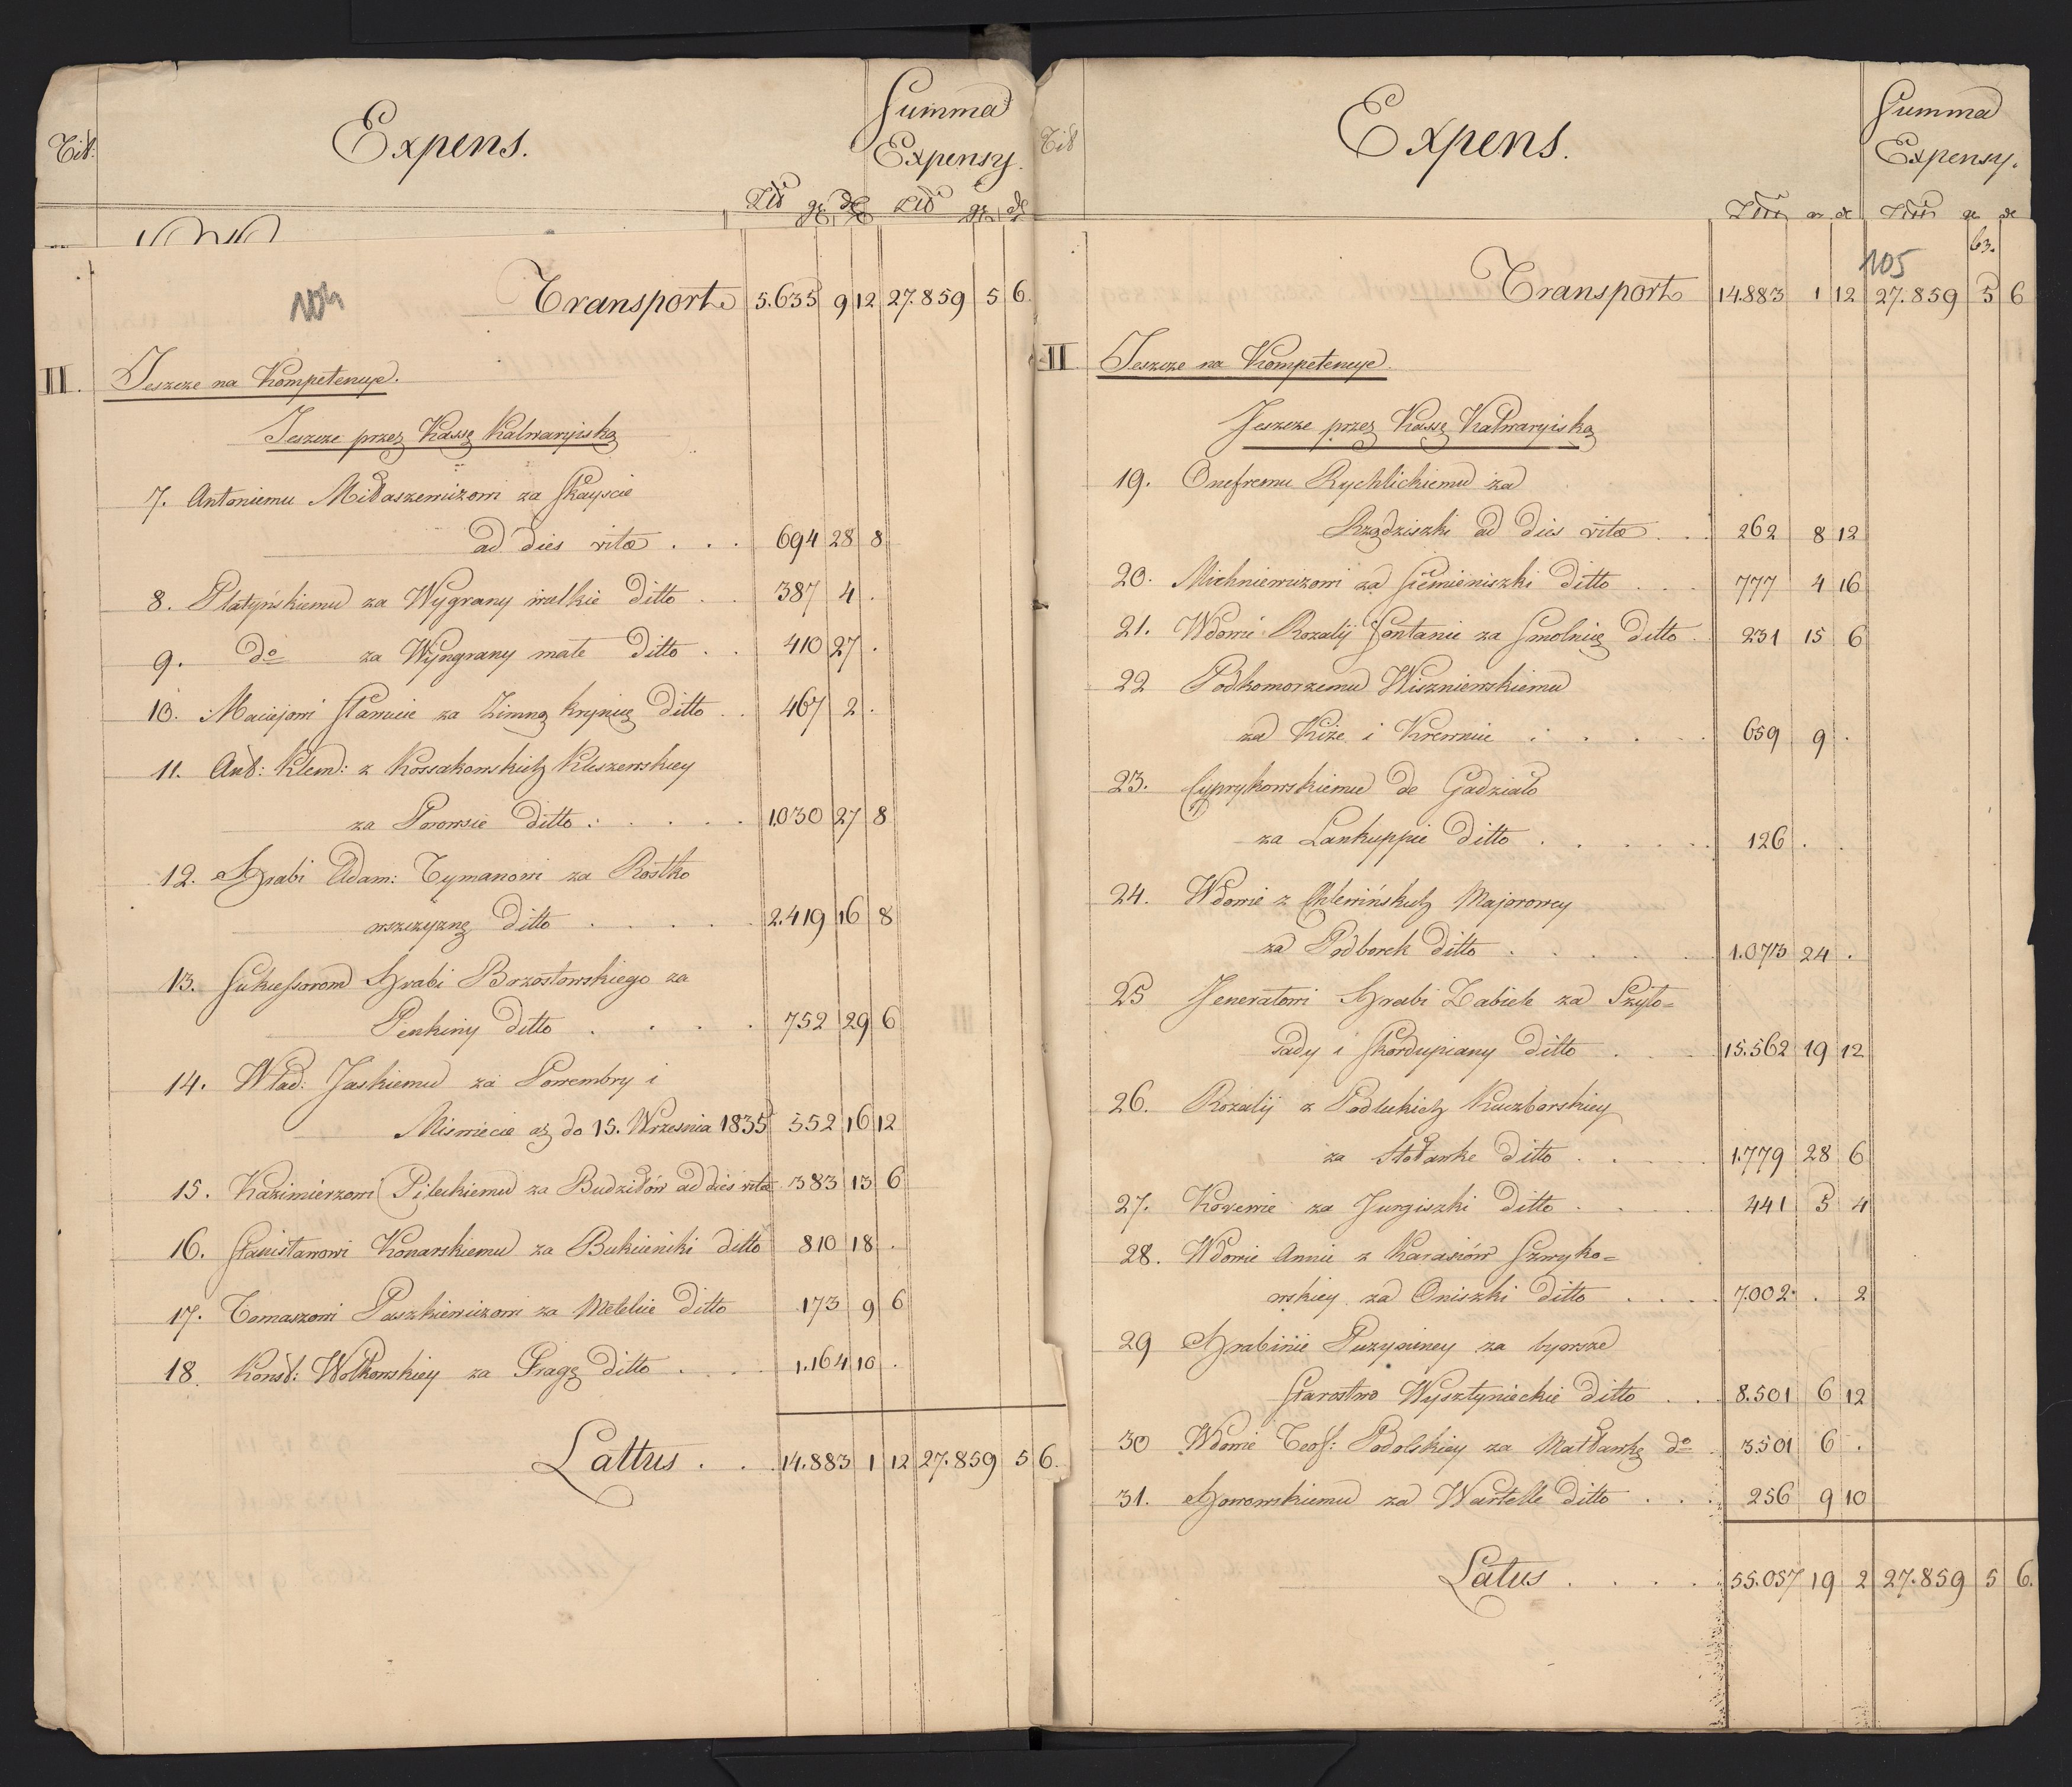 Tit:
Expens.
Summa
Expensy.
Złt gr d Złt gr d
104
Transport 5.635 9 12 27.859 5 6.
II. Jeszcze na Kompetencye.
Jeszcze przez Kassę Kalwaryiską
7. Antoniemu Miłaszewiczowi za Skayście
ad dies vitae . . . 694 28 8
8. Platyńskiemu za Wygrany wielkie ditto . . 387 4 .
9. do za Wyngrany małe ditto . . 410 27 .
10. Maciejowi Sławcie za Zimną krynicę ditto . . 467 2 .
11. Ant: Klem: z Kossakowskich Kliszewskiey
za Poiowsie ditto . . . . . 1.030 27 8
12. Hrabi Adam: Tymanowi za Rostko
wszczyznę ditto . . . . . 2.419 16 8
13. Sukcessorom Hrabi Brzostowskiego za
Penkiny ditto . . . . 752 29 6
14. Wład: Jaskiemu za Porrembry i
Misiniecie aż do 15. Września 1835 552 16 12
15. Kazimierzowi Pileckiemu za Budziłów ad dies vitae 383 13 6
16. Stanisławowi Konarskiemu za Bukieniki ditto 810 18 .
17. Tomaszowi Paszkiewiczowi za Metelice ditto 173 9 6
18. Konst: Wołkowskiey za Pragę ditto . . . . 1.164 10 .
Lattus . . . 14.883 1 12 27.859 5 6.
Tit
Expens.
Summa
Expensy.
63.
105
Transport 14.883 1 12 27.859 5 6
II Jeszcze na Kompetencye.
Jeszcze przez Kassę Kalwaryiską
19. Onefremu Rychlickiemu za
Rządziszki ad dies vitae . . 262 8 12
20. Michniewiczowi za Siemieniszki ditto . . . 777 4 16
21. Wdowie Rozalij Fontanie za Smolnicę ditto . 231 15 6
22 Podkomorzemu Wiszniewskiemu
za Kiże i Krewnie . . . . . 659 9 .
23. Cyprykowskiemu de Gadziało
za Lankuppie ditto . . . . . . 126 . .
24. Wdowie z Chlewińskich Majorowey
za Podborek ditto . . . . . 1.073 24 .
25 Jenerałowi Hrabi Zabiele za Szyło=
sady i Skordupiany ditto . . . 15.562 19 12
26. Rozalij z Podleckich Kuczborskiey
za Stoławke ditto . . . . 1.779 28 6
27. Korewie za Jurgiszki ditto . . . . 441 5 4
28. Wdowie Annie z Karasiów Szwyko=
wskiey za Oniszki ditto . . . . 7.002 . 2
29 Hrabinie Puzyniney za bywsze
Starostwo Wysztynieckie ditto . . . 8.501 6 12
30 Wdowie Teof: Podolskiey za Matławkę do . 3.501 6 .
31. Horowskiemu za Wartelle ditto . . . 256 9 10
Latus . . . . 55.057 19 2 27.859 5 6.